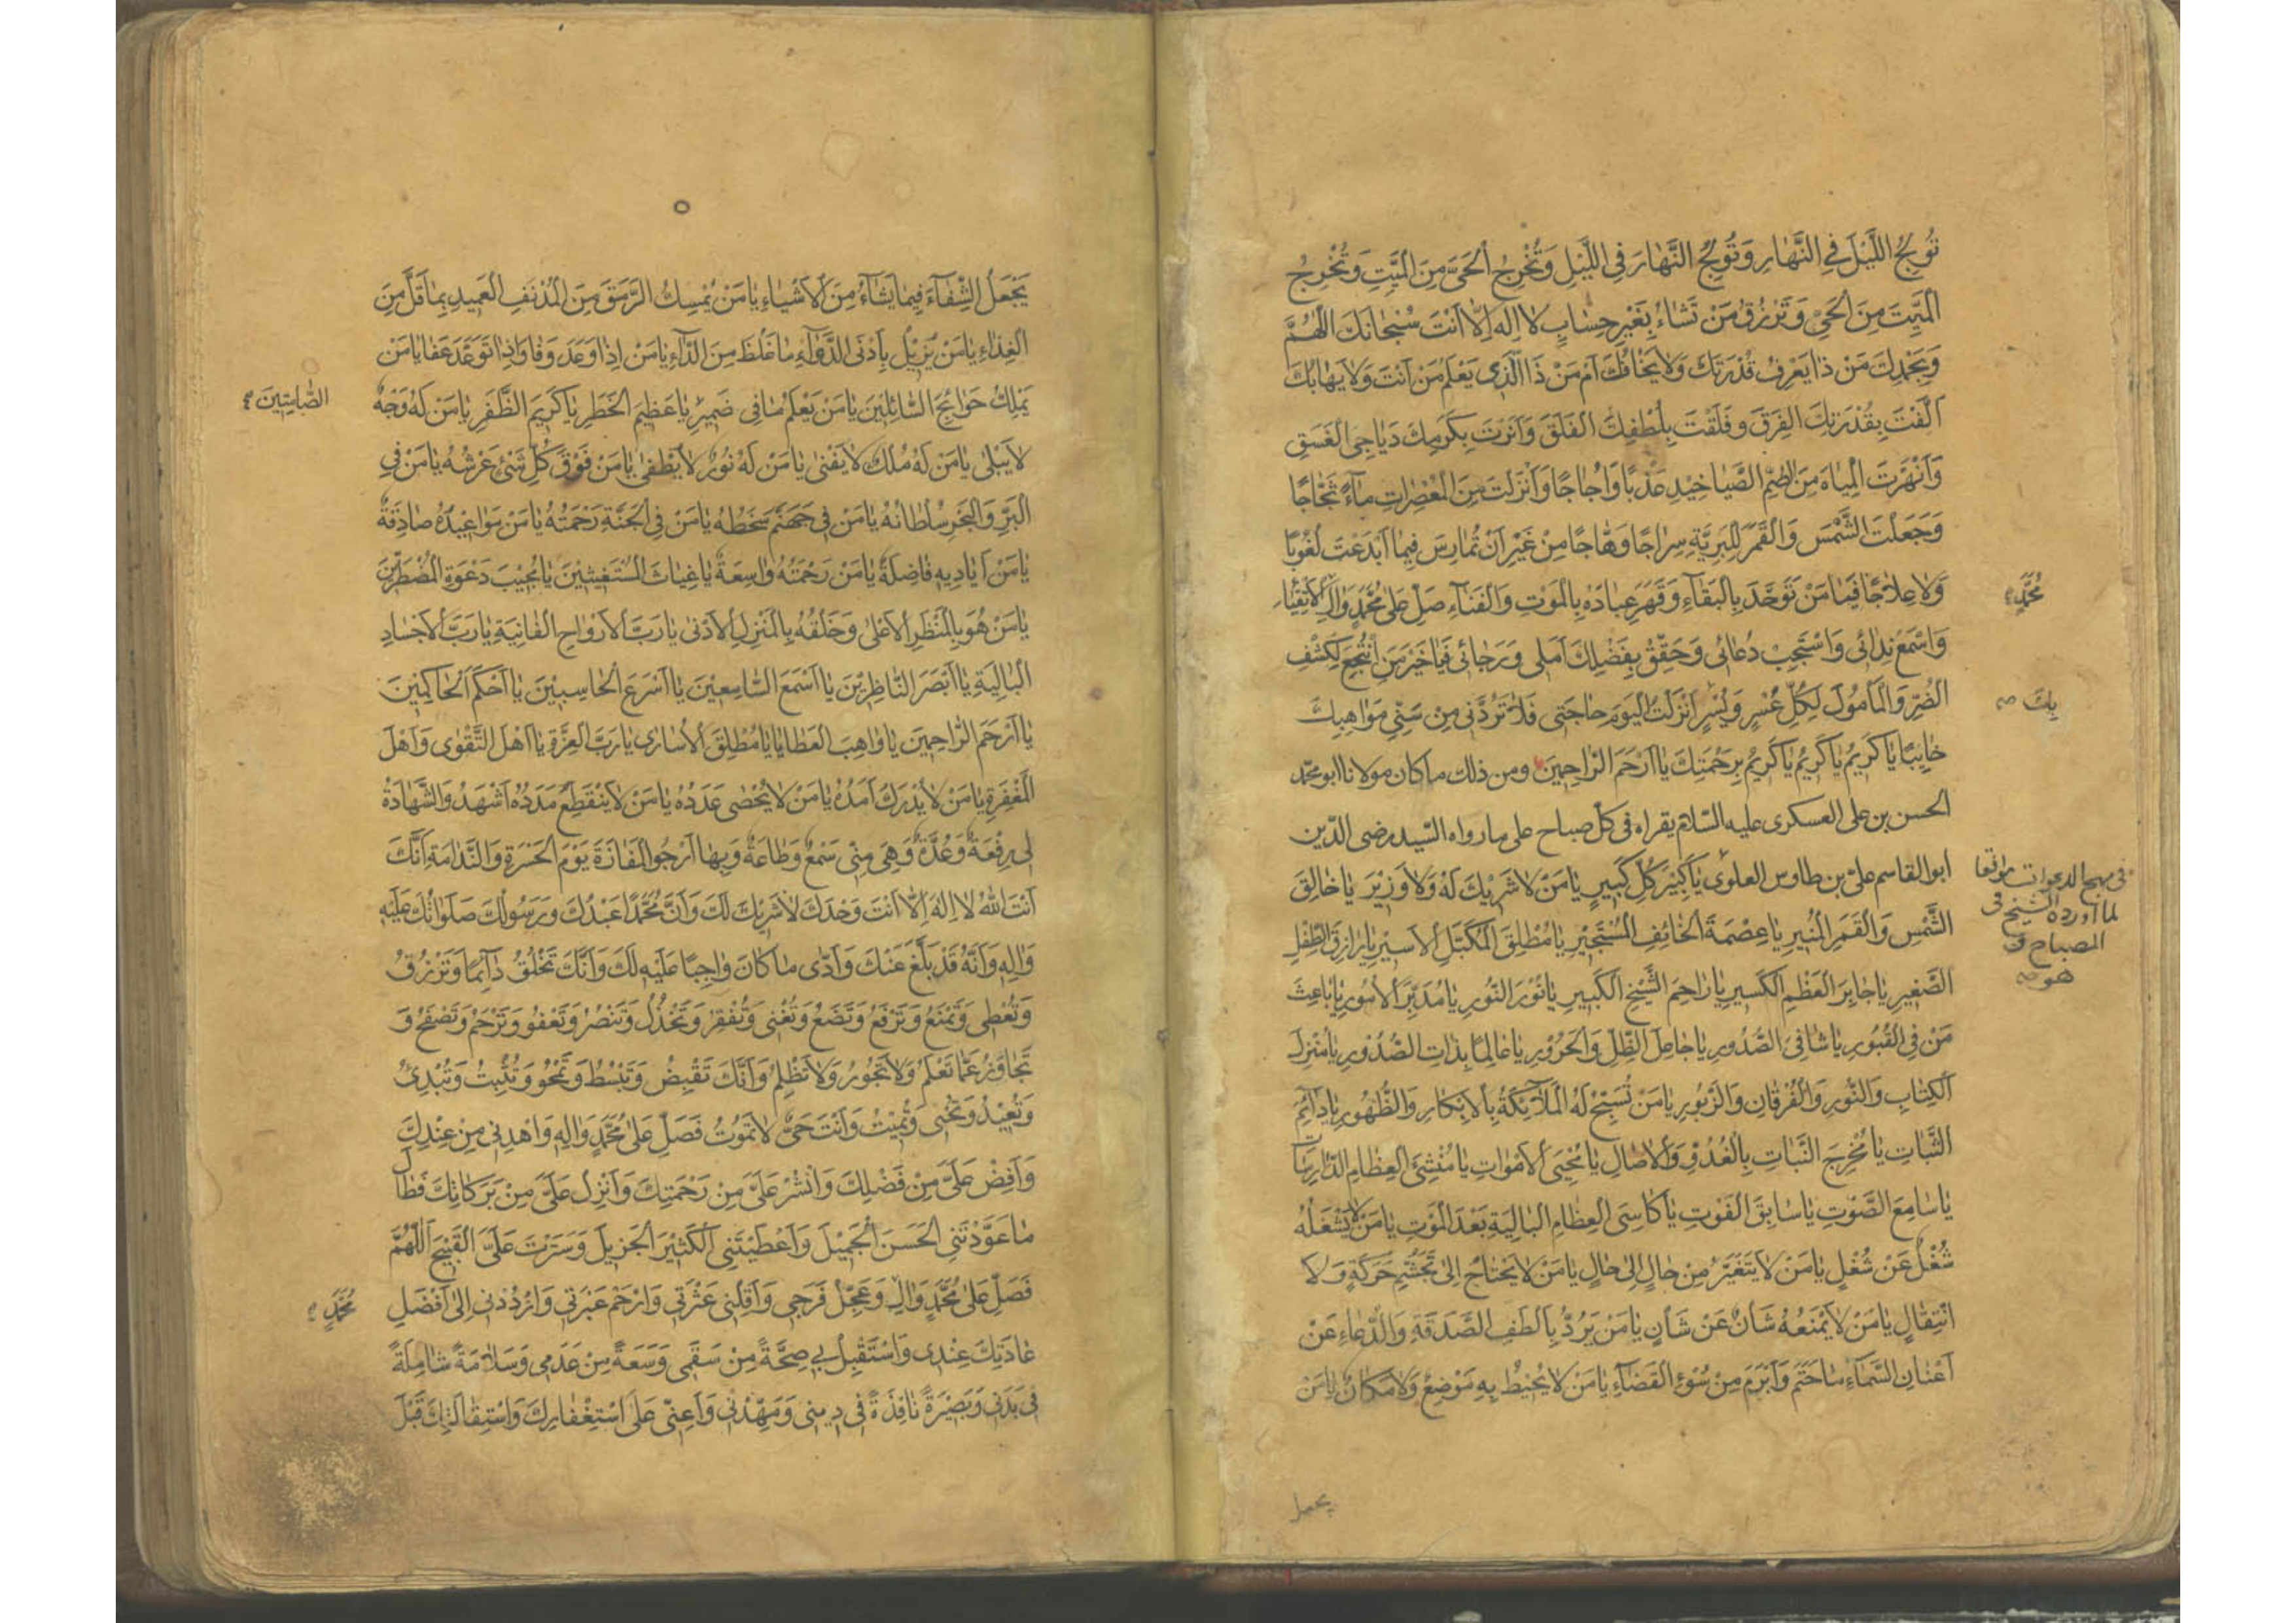 تُولِجُ اللَّيْلَ فِي النَّهٰارِ وَتُولِجُ النَّهٰارَ فِي اللَّيْلِ وَتُخْرِجُ الْحَيَّ مِنَ الْمَيِّتِ وَتُخْرِجُ
الْمَيِّتَ مِنَ الْحَيِّ وَتَرْزُقُ مَنْ تَشٰاءُ بِغَيْرِ حِسٰابٍ لٰا اِلٰهَ اِلّٰا اَنْتَ سُبْحٰانَكَ اللّٰهُمَّ
وَبِحَمْدِكَ مَنْ ذٰا يَعْرِفُ قُدْرَتَكَ وَلٰا يَخٰافُكَ اَمْ مَنْ ذَا الَّذِي يَعْلَمُ مَنْ اَنْتَ وَلٰا يَهٰابُكَ
اَلَّفْتَ بِقُدْرَتِكَ الْفِرَقَ وَفَلَقْتَ بِلُطْفِكَ الْفَلَقَ وَاَنَرْتَ بِكَرَمِكَ دَيٰاجِيَ الْغَسَقِ
وَاَنْهَرْتَ الْمِيٰاهَ مِنَ الصُّمِّ الصَّيٰاخِيدِ عَذْبًا وَاُجٰاجًا وَاَنْزَلْتَ مِنَ الْمُعْصِرٰاتِ مٰاءً ثَجّٰاجًا
وَجَعَلْتَ الشَّمْسَ وَالْقَمَرَ لِلْبَرِيَّةِ سِرٰاجًا وَهّٰاجًا مِنْ غَيْرِ اَنْ تُمٰارِسَ فِيمَا ابْتَدَعْتَ لُغُوبًا
وَلٰا عِلٰاجًا فَيٰا مَنْ تَوَحَّدَ بِالْبَقٰاءِ وَقَهَرَ عِبٰادَهُ بِالْمَوْتِ وَالْفَنٰاءِ صَلِّ عَلىٰ مُحَمَّدٍ وَاٰلِ الْاَتْقِيٰاءِ
مُحَمَّدٍ
وَاسْمَعْ نِدٰائِي وَاسْتَجِبْ دُعٰائِي وَحَقِّقْ بِفَضْلِكَ اَمَلِي وَرَجٰائِي فَيٰا خَيْرَ مَنِ انْتُجِعَ لِكَشْفِ
الضُّرِّ وَالْمَأْمُولَ لِكُلِّ عُسْرٍ وَيُسْرٍ اَنْزَلْتُ الْيَوْمَ حٰاجَتِي فَلٰا تَرُدَّنِي مِنْ سَنِيِّ مَوٰاهِبِكَ
بِكَ صح
خٰائِبًا يٰا كَرِيمُ يٰا كَرِيمُ يٰا كَرِيمُ بِرَحْمَتِكَ يٰا اَرْحَمَ الرّٰاحِمِينَ ومن ذلك ما كان مولانا ابو محمّد
الحسن بن علي العسكرى عليه السّلام يقراه فى كلّ صباح على ما رواه السّيد رضى الدّين
ابو القاسم علىّ بن طاوس العلوىّ يٰا كَبِيرَ كُلِّ كَبِيرٍ يٰا مَنْ لٰا شَرِيكَ لَهُ وَلٰا وَزِيرَ يٰا خٰالِقَ
فى مهج الدعوات موافقا
لما اورده الشيخ فى
المصباح و
هو صح
الشَّمْسِ وَالْقَمَرِ الْمُنِيرِ يٰا عِصْمَةَ الْخٰائِفِ الْمُسْتَجِيرِ يٰا مُطْلِقَ الْمُكَبَّلِ الْاَسِيرِ يٰا رٰازِقَ الطِّفْلِ
الصَّغِيرِ يٰا جٰابِرَ الْعَظْمِ الْكَسِيرِ يٰا رٰاحِمَ الشَّيْخِ الْكَبِيرِ يٰا نُورَ النُّورِ يٰا مُدَبِّرَ الْاُمُورِ يٰا بٰاعِثَ
مَنْ فِي الْقُبُورِ يٰا شٰافِيَ الصُّدُورِ يٰا جٰاعِلَ الظِّلِّ وَالْحَرُورِ يٰا عٰالِمًا بِذٰاتِ الصُّدُورِ يٰا مُنْزِلَ
الْكِتٰابِ وَالنُّورِ وَالْفُرْقٰانِ وَالزَّبُورِ يٰا مَنْ تُسَبِّحُ لَهُ الْمَلٰائِكَةُ بِالْاِبْكٰارِ وَالظُّهُورِ يٰا دٰائِمَ
الثَّبٰاتِ يٰا مُخْرِجَ النَّبٰاتِ بِالْغُدُوِّ وَالْاٰصٰالِ يٰا مُحْيِيَ الْاَمْوٰاتِ يٰا مُنْشِئَ الْعِظٰامِ الدّٰارِسٰاتِ
يٰا سٰامِعَ الصَّوْتِ يٰا سٰابِقَ الْفَوْتِ يٰا كٰاسِيَ الْعِظٰامِ الْبٰالِيَةِ بَعْدَ الْمَوْتِ يٰا مَنْ لٰا يَشْغَلُهُ
شُغْلٌ عَنْ شُغْلٍ يٰا مَنْ لٰا يَتَغَيَّرُ مِنْ حٰالٍ اِلىٰ حٰالٍ يٰا مَنْ لٰا يَحْتٰاجُ اِلىٰ تَجَشُّمِ حَرَكَةٍ وَلٰا
انْتِقٰالٍ يٰا مَنْ لٰا يَمْنَعُهُ شَأْنٌ عَنْ شَأْنٍ يٰا مَنْ يَرُدُّ بِاَلْطَفِ الصَّدَقَةِ وَالدُّعٰاءِ عَنْ
اَعْنٰانِ السَّمٰاءِ مٰا حَتَمَ وَاَبْرَمَ مِنْ سُوءِ الْقَضٰاءِ يٰا مَنْ لٰا يُحِيطُ بِهِ مَوْضِعٌ وَلٰا مَكٰانٌ يٰا مَنْ
يجعل
يَجْعَلُ الشِّفٰاءَ فِيمٰا يَشٰاءُ مِنَ الْاَشْيٰاءِ يٰا مَنْ يُمْسِكُ الرَّمَقَ مِنَ الْمُدْنَفِ الْعَمِيدِ بِمٰا قَلَّ مِنَ
الْغِذٰاءِ يٰا مَنْ يُزِيلُ بِاَدْنَى الدَّوٰاءِ مٰا غَلُظَ مِنَ الدّٰاءِ يٰا مَنْ اِذٰا وَعَدَ وَفٰا وَاِذٰا تَوَعَّدَ عَفٰا يٰا مَنْ
يَمْلِكُ حَوٰائِجَ السّٰائِلِينَ يٰا مَنْ يَعْلَمُ مٰا فِي ضَمِيرِ يٰا عَظِيمَ الْخَطَرِ يٰا كَرِيمَ الظَّفَرِ يٰا مَنْ لَهُ وَجْهٌ
الصّٰامِتِينَ
لٰا يَبْلىٰ يٰا مَنْ لَهُ مُلْكٌ لٰا يَفْنىٰ يٰا مَنْ لَهُ نُورٌ لٰا يُطْفىٰ يٰا مَنْ فَوْقَ كُلِّ شَيْءٍ عَرْشُهُ يٰا مَنْ فِي
الْبَرِّ وَالْبَحْرِ سُلْطٰانُهُ يٰا مَنْ فِي جَهَنَّمَ سَخَطُهُ يٰا مَنْ فِي الْجَنَّةِ رَحْمَتُهُ يٰا مَنْ مَوٰاعِيدُهُ صٰادِقَةٌ
يٰا مَنْ اَيٰادِيهِ فٰاضِلَةٌ يٰا مَنْ رَحْمَتُهُ وٰاسِعَةٌ يٰا غِيٰاثَ الْمُسْتَغِيثِينَ يٰا مُجِيبَ دَعْوَةِ الْمُضْطَرِّينَ
يٰا مَنْ هُوَ بِالْمَنْظَرِ الْاَعْلىٰ وَخَلْقُهُ بِالْمَنْزِلِ الْاَدْنىٰ يٰا رَبَّ الْاَرْوٰاحِ الْفٰانِيَةِ يٰا رَبَّ الْاَجْسٰادِ
الْبٰالِيَةِ يٰا اَبْصَرَ النّٰاظِرِينَ يٰا اَسْمَعَ السّٰامِعِينَ يٰا اَسْرَعَ الْحٰاسِبِينَ يٰا اَحْكَمَ الْحٰاكِمِينَ
يٰا اَرْحَمَ الرّٰاحِمِينَ يٰا وٰاهِبَ الْعَطٰايٰا يٰا مُطْلِقَ الْاُسٰارىٰ يٰا رَبَّ الْعِزَّةِ يٰا اَهْلَ التَّقْوىٰ وَاَهْلَ
الْمَغْفِرَةِ يٰا مَنْ لٰا يُدْرَكُ اَمَدُهُ يٰا مَنْ لٰا يُحْصىٰ عَدَدُهُ يٰا مَنْ لٰا يَنْقَطِعُ مَدَدُهُ اَشْهَدُ وَالشَّهٰادَةُ
لِي رِفْعَةٌ وَعُدَّةٌ وَهِيَ مِنِّي سَمْعٌ وَطٰاعَةٌ وَبِهٰا اَرْجُو الْمَفٰازَةَ يَوْمَ الْحَسْرَةِ وَالنَّدٰامَةِ اِنَّكَ
اَنْتَ اللهُ لٰا اِلٰهَ اِلّٰا اَنْتَ وَحْدَكَ لٰا شَرِيكَ لَكَ وَاَنَّ مُحَمَّدًا عَبْدُكَ وَرَسُولُكَ صَلَوٰاتُكَ عَلَيْهِ
وَاٰلِهِ وَاَنَّهُ قَدْ بَلَّغَ عَنْكَ وَاَدّىٰ مٰا كٰانَ وٰاجِبًا عَلَيْهِ لَكَ وَاَنَّكَ تَخْلُقُ دٰائِمًا وَتَرْزُقُ
وَتُعْطِي وَتَمْنَعُ وَتَرْفَعُ وَتَضَعُ وَتُغْنِي وَتُفْقِرُ وَتَخْذُلُ وَتَنْصُرُ وَتَعْفُو وَتَرْحَمُ وَتَصْفَحُ وَ
تَجٰاوَزُ عَمّٰا تَعْلَمُ وَلٰا تَجُورُ وَلٰا تَظْلِمُ وَاَنَّكَ تَقْبِضُ وَتَبْسُطُ وَتَمْحُو وَتُثْبِتُ وَتُبْدِئُ
وَتُعِيدُ وَتُحْيِي وَتُمِيتُ وَاَنْتَ حَيٌّ لٰا تَمُوتُ فَصَلِّ عَلىٰ مُحَمَّدٍ وَاٰلِهِ وَاهْدِنِي مِنْ عِنْدِكَ
وَاَفِضْ عَلَيَّ مِنْ فَضْلِكَ وَانْشُرْ عَلَيَّ مِنْ رَحْمَتِكَ وَاَنْزِلْ عَلَيَّ مِنْ بَرَكٰاتِكَ فَطٰالَ
مٰا عَوَّدْتَنِي الْحَسَنَ الْجَمِيلَ وَاَعْطَيْتَنِي الْكَثِيرَ الْجَزِيلَ وَسَتَرْتَ عَلَيَّ الْقَبِيحَ اَللّٰهُمَّ
فَصَلِّ عَلىٰ مُحَمَّدٍ وَاٰلِ وَعَجِّلْ فَرَجِي وَاَقِلْنِي عَثْرَتِي وَارْحَمْ عَبْرَتِي وَارْدُدْنِي اِلىٰ اَفْضَلِ
مُحَمَّدٍ
عٰادَتِكَ عِنْدِي وَاسْتَقْبِلْ بِي صِحَّةً مِنْ سَقَمِي وَسَعَةً مِنْ عَدَمِي وَسَلٰامَةً شٰامِلَةً
فِي بَدَنِي وَبَصِيرَةً نٰافِذَةً فِي دِينِي وَمَهِّدْنِي وَاَعِنِّي عَلَى اسْتِغْفٰارِكَ وَاسْتِقٰالَتِكَ قَبْلَ